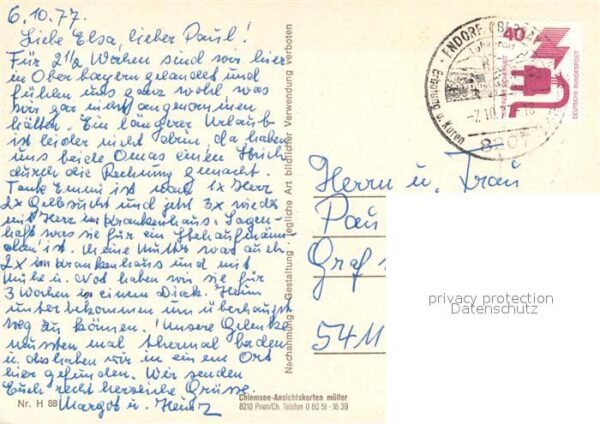 6.10.77.
Liebe Elsa, lieber Paul!
Für 2 1/2 Wochen sind wir hier
in Oberbayern gelandet und
fühlen uns ganz wohl, was
wir gar nicht angenommen
hätten. Ein längerer Urlaub
ist leider nicht drin, da haben
uns beide Omas einen Strich
durch die Rechnung gemacht.
Tante Emmi ist war 1x Herz
2x Gelbsucht und jetzt 3x wieder
mit Herz im Krankenhaus. Sagen-
haft was sie für ein Stehaufmänn-
chen ist. Meine Mutti war auch
2x im Krankenhaus und mit
Mühe u. Not haben wir sie für
3 Wochen in einem Diak. Heim
unterbekommen um überhaupt
weg zu können. Unsere Gelenke
mussten mal thermal baden
u. das haben wir in einem Ort
hier gefunden. Wir senden
Euch recht herzliche Grüsse.
Margot u. Heinz
Nr. H 88
Nachahmung - Gestaltung - jegliche Art bildlicher Verwendung verboten
Chiemsee-Ansichtskarten müller
8210 Prien/Ch. Telefon 0 80 51 - 16 39
ENDORF
Luftkurort
Erholung u. Kuren
-7.10.77
8207
40
DEUTSCHE BUNDESPOST
Herrn u. Frau
Pau
Graf
5411
privacy protection
Datenschutz